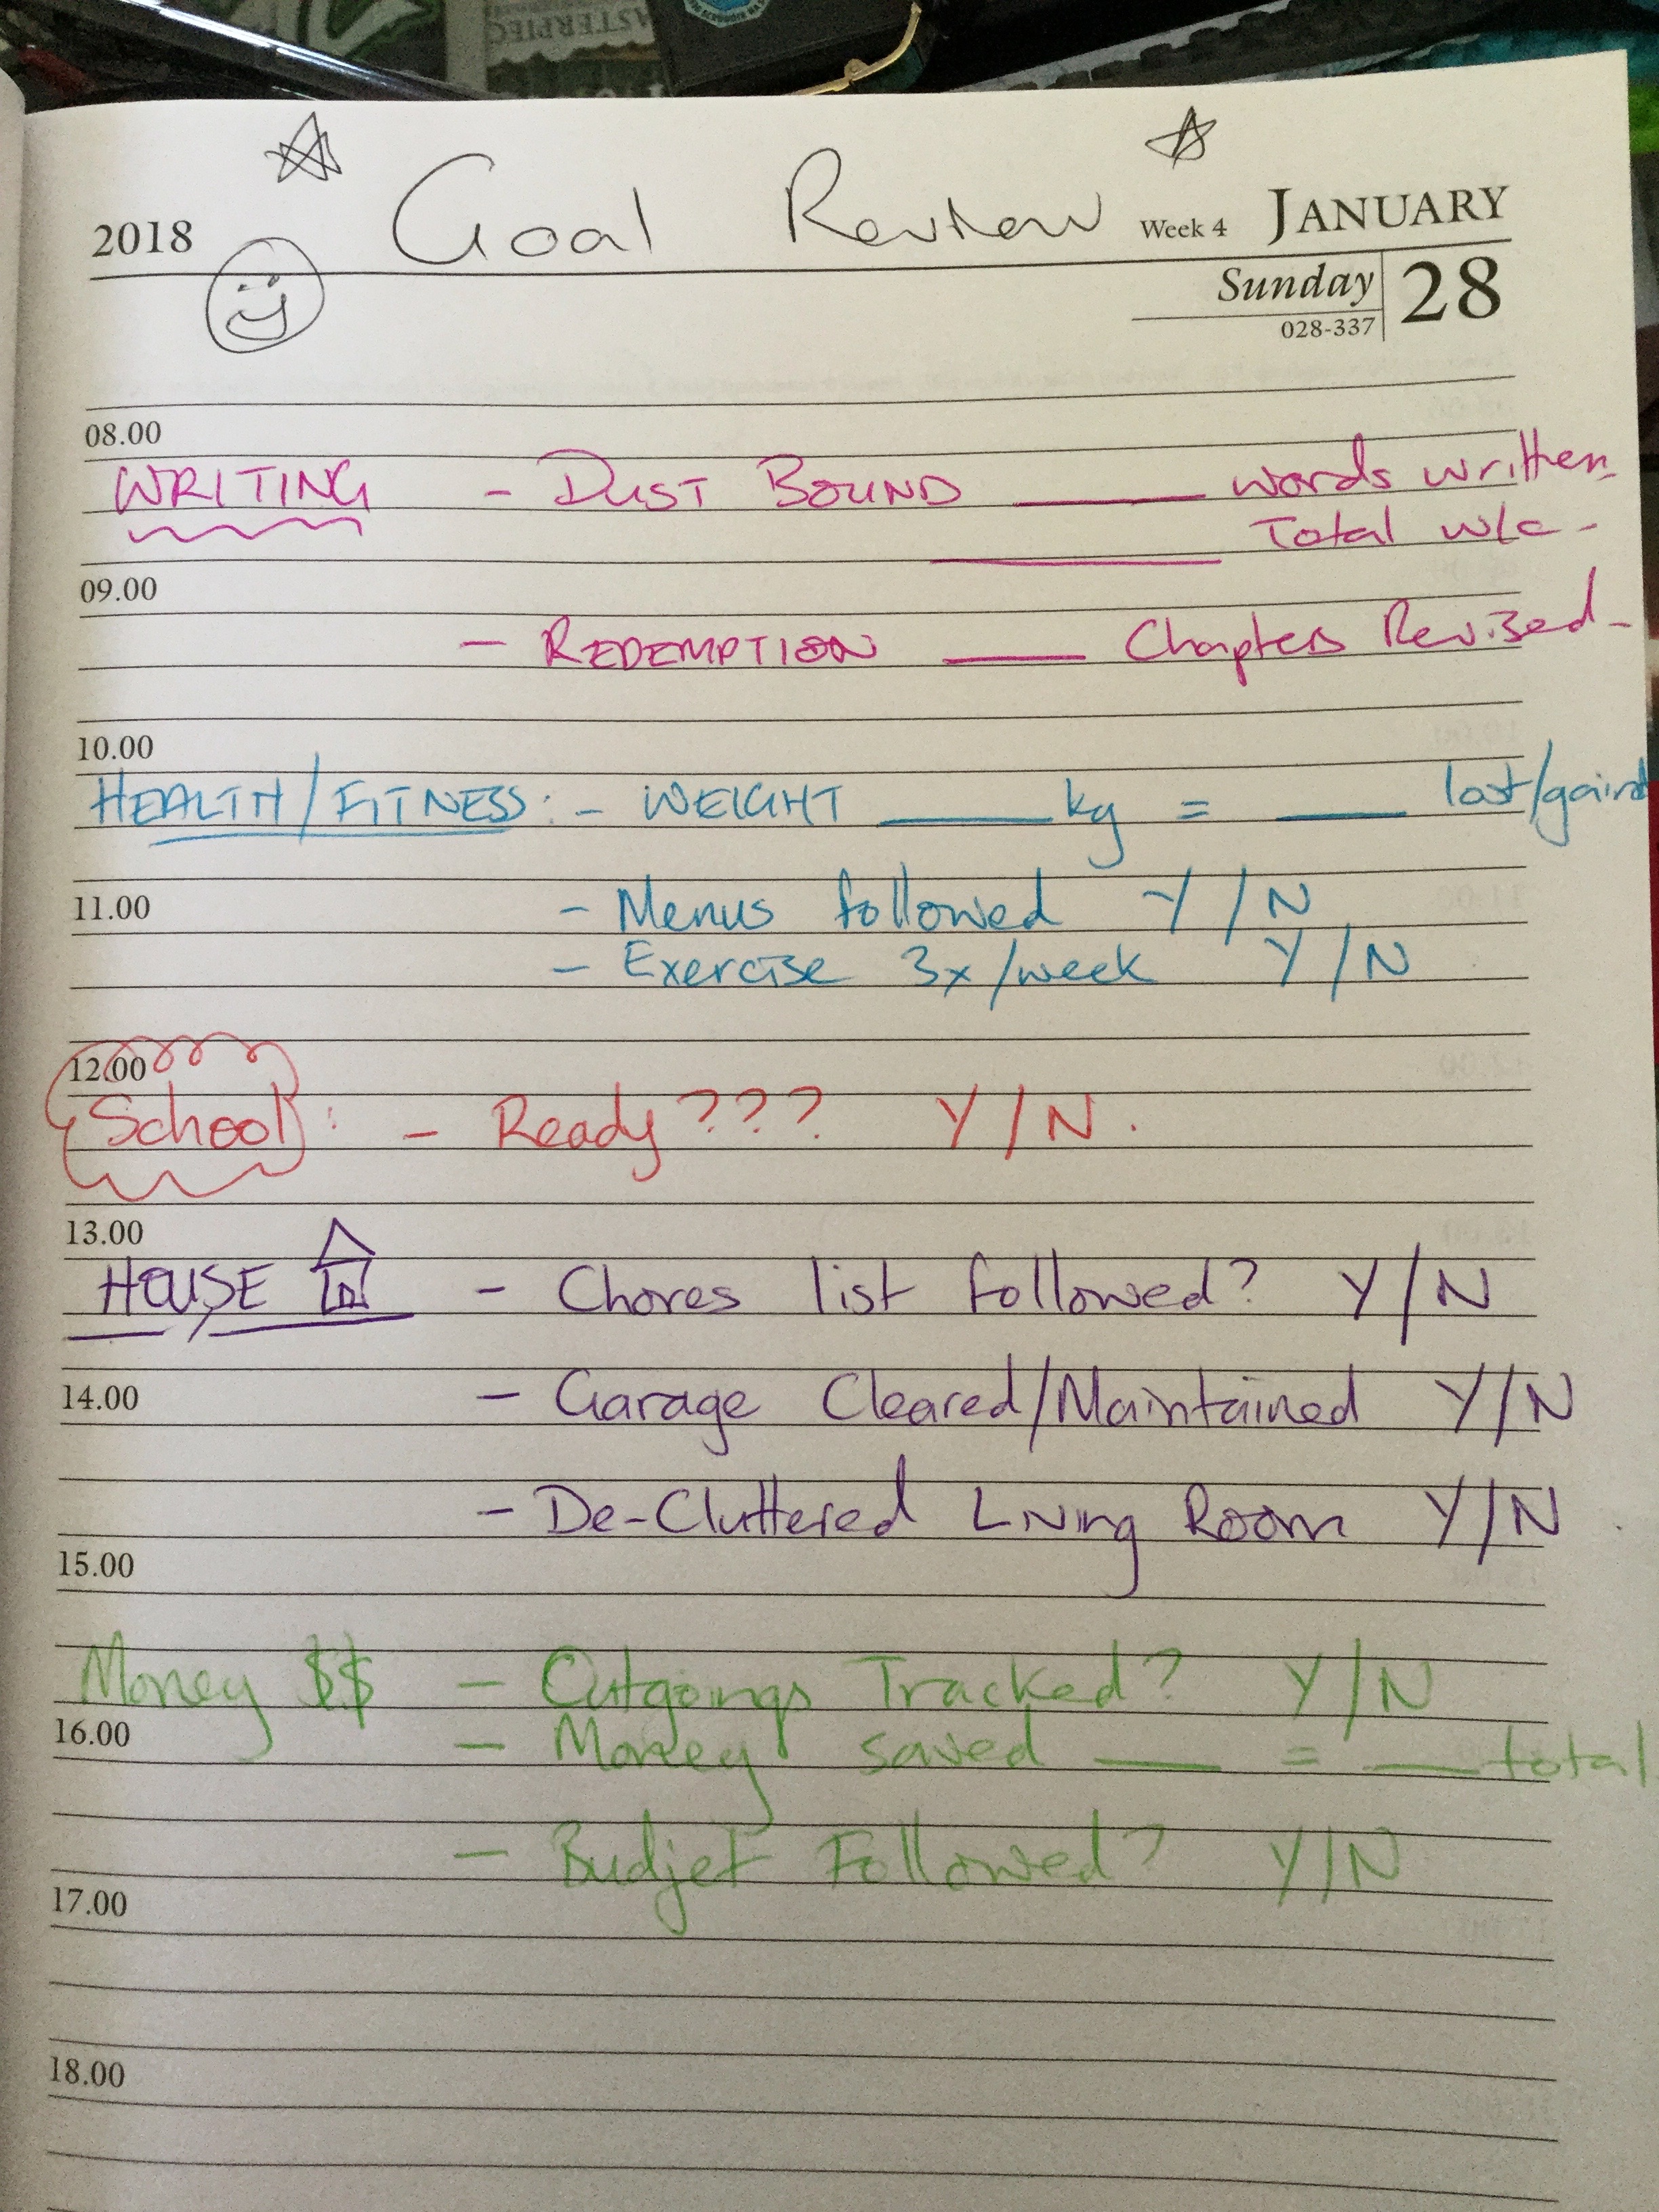 ASTERPIEC
2018 Goal Review Week 4 JANUARY
Sunday 28
028-337
08.00
WRITING - DUST BOUND ____ words written.
____ Total w/c -
09.00
- REDEMPTION ____ Chapters Revised -
10.00
HEALTH/FITNESS: - WEIGHT ____ kg = ____ lost/gained
11.00 - Menus followed Y/N
- Exercise 3x/week Y/N
12.00
School: - Ready??? Y/N.
13.00
HOUSE - Chores list followed? Y/N
14.00 - Garage Cleared/Maintained Y/N
- De-Cluttered Living Room Y/N
15.00
Money $$ - Outgoings Tracked? Y/N
16.00 - Money saved ____ = ____ total
- Budjet Followed? Y/N
17.00
18.00